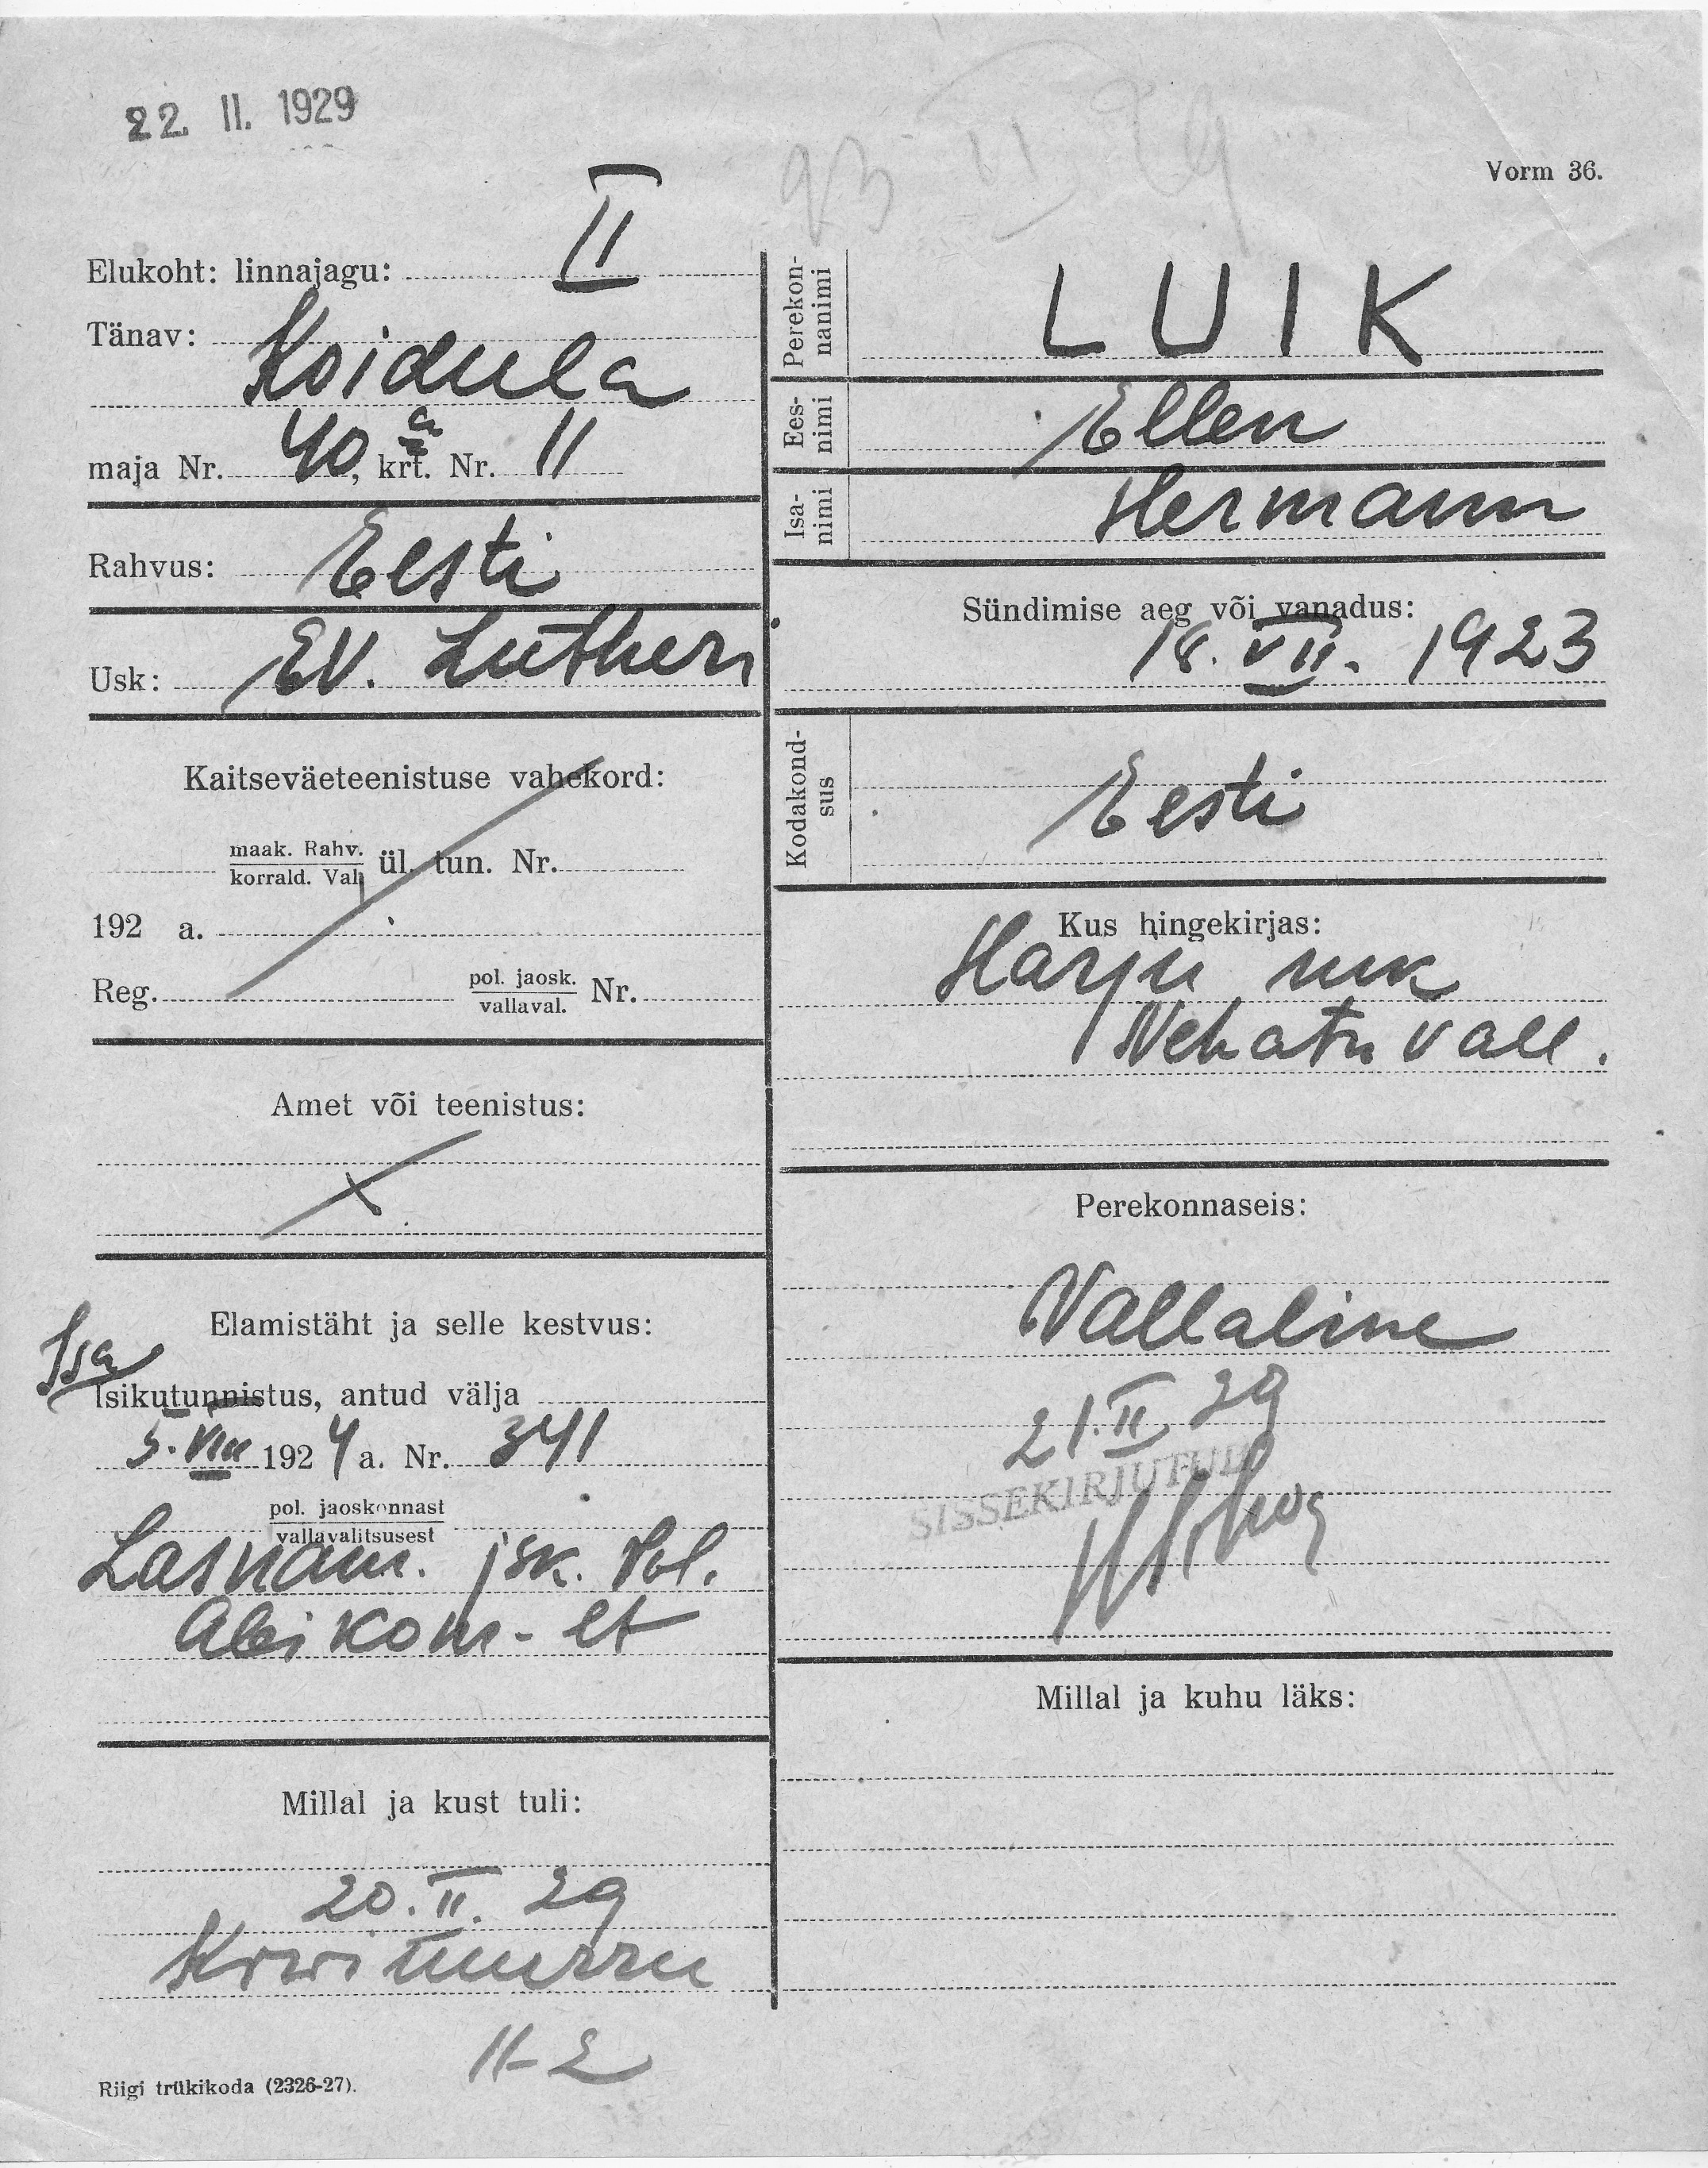 22. II. 1929
23 II 29
Vorm 36.
Elukoht: linnajagu: II
Tänav: Koidula
maja Nr. 40 a, krt. Nr. 11
Rahvus: Eesti
Usk: Ev. Lutheri
Kaitseväeteenistuse vahekord:
maak. Rahv.
korrald. Val. ül. tun. Nr.
192 a.
Reg. pol. jaosk.
vallaval. Nr.
Amet või teenistus:
X
Elamistäht ja selle kestvus:
Isa
Isikutunnistus, antud välja
5. VIII 1924 a. Nr. 341
pol. jaoskonnast
vallavalitsusest
Lasnam. jsk. Pol.
Abikom-lt
Millal ja kust tuli:
20. II. 29
Kivimurru
11-2
Riigi trükikoda (2326-27).
Perekonnanimi
LUIK
Eesnimi
Ellen
Isanimi
Hermann
Sündimise aeg või vanadus:
18. VII. 1923
Kodakondsus
Eesti
Kus hingekirjas:
Harju mk
Nehatu vall.
Perekonnaseis:
Vallaline
21. II 29
SISSEKIRJUTUD
Millal ja kuhu läks: